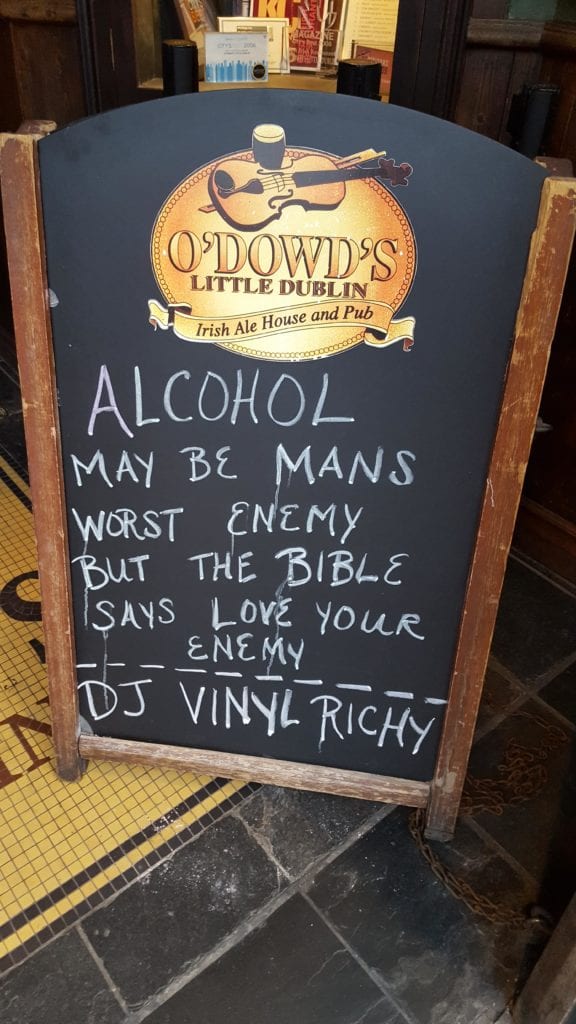 MAGAZINE
O'DOWD'S
LITTLE DUBLIN
Irish Ale House and Pub
ALCOHOL
MAY BE MANS
WORST ENEMY
BUT THE BIBLE
SAYS LOVE YOUR
ENEMY
DJ VINYL RICHY